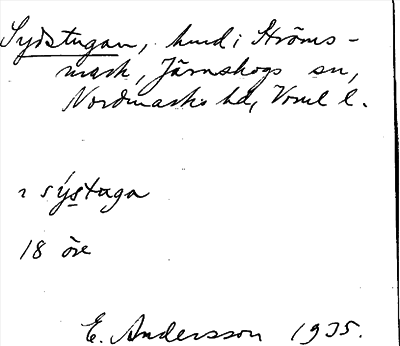 Sydstugan, hmd i Ströms-
mark, Järnskogs sn,
Nordmarks hd, Vrml l.
sy̍staga
18 öre
E. Andersson 1935.